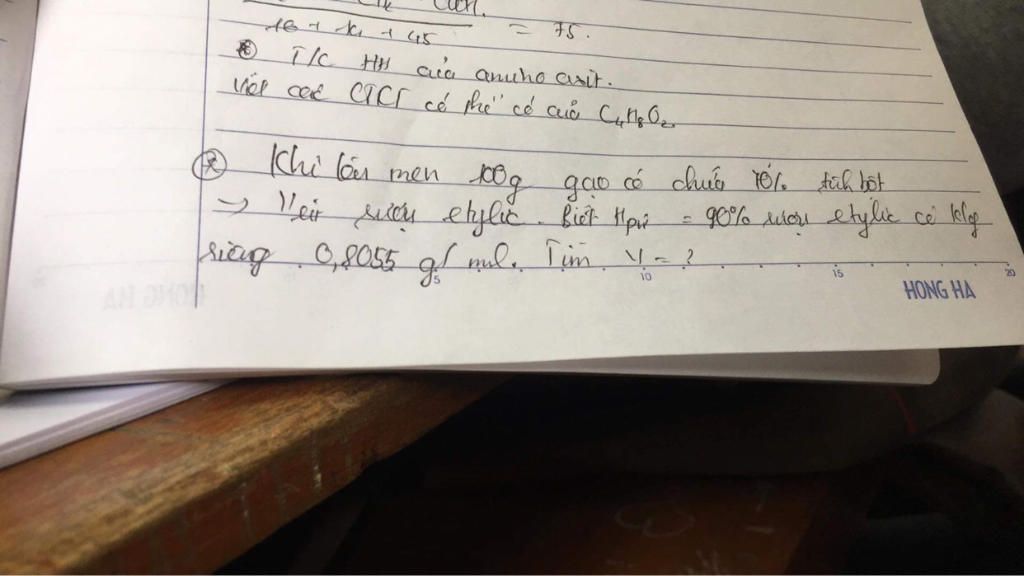 = 75.
16 + 14 + 45
T/C HH của amino axit.
Viết các CTCT có thể có của C₄H₈O₂
Khi lên men 100g gạo có chứa 70% tinh bột
→ V lít rượu etylic. Biết Hpư = 90% rượu etylic có klg
riêng 0,8055 g/ml. Tìm V = ?
5 10 15 20
HONG HA